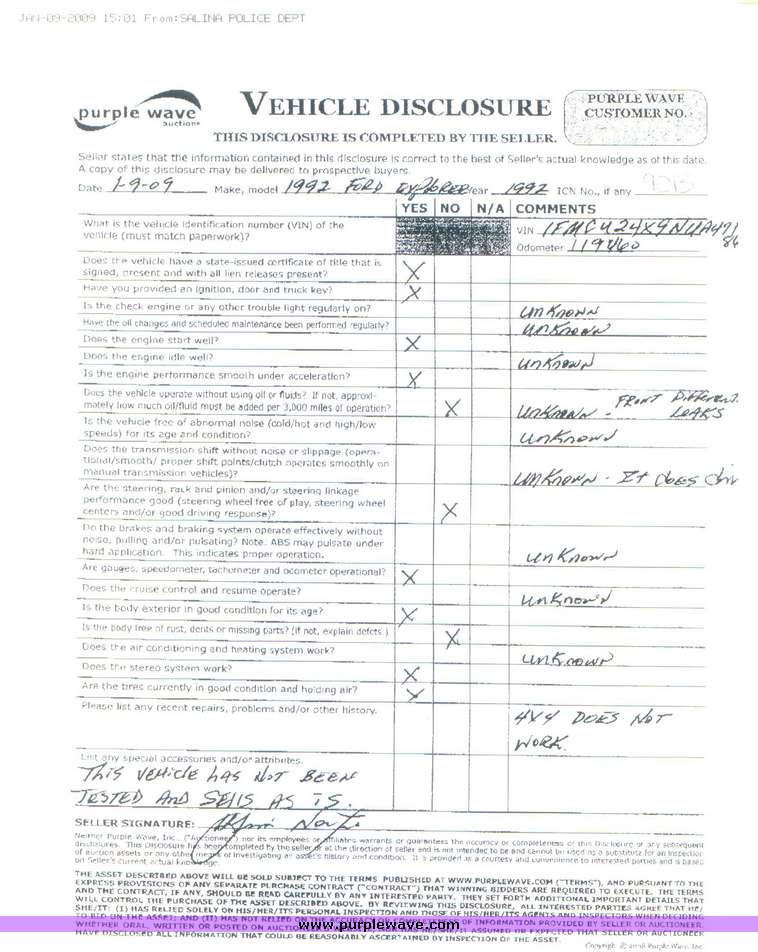 JAN-09-2009 15:01 From:SALINA POLICE DEPT
purple wave
auction
VEHICLE DISCLOSURE
PURPLE WAVE
CUSTOMER NO.
THIS DISCLOSURE IS COMPLETED BY THE SELLER.
Seller states that the information contained in this disclosure is correct to the best of Seller's actual knowledge as of this date.
A copy of this disclosure may be delivered to prospective buyers.
Date 1-9-09 Make, model 1992 FORD EXPLORER Year 1992 ICN No., if any
YES NO N/A COMMENTS
What is the vehicle identification number (VIN) of the
vehicle (must match paperwork)?
VIN 1FMCU24X9NUA471
86
Odometer 119460
Does the vehicle have a state-issued certificate of title that is
signed, present and with all lien releases present? X
Have you provided an ignition, door and truck key? X
Is the check engine or any other trouble light regularly on? UNKNOWN
Have the oil changes and scheduled maintenance been performed regularly? UNKNOWN
Does the engine start well? X
Does the engine idle well? UNKNOWN
Is the engine performance smooth under acceleration? X
Does the vehicle operate without using oil or fluids? If not, approxi-
mately how much oil/fluid must be added per 3,000 miles of operation? X UNKNOWN - FRONT Differen.
LEAKS
Is the vehicle free of abnormal noise (cold/hot and high/low
speeds) for its age and condition? UNKNOWN
Does the transmission shift without noise or slippage (opera-
tional/smooth/ proper shift points/clutch operates smoothly on
manual transmission vehicles)? UNKNOWN - It Does
Are the steering, rack and pinion and/or steering linkage
performance good (steering wheel free of play, steering wheel
centers and/or good driving response)? X
Do the brakes and braking system operate effectively without
noise, pulling and/or pulsating? Note: ABS may pulsate under
hard application. This indicates proper operation. UNKNOWN
Are gauges, speedometer, tachometer and odometer operational? X
Does the cruise control and resume operate? UNKNOWN
Is the body exterior in good condition for its age? X
Is the body free of rust, dents or missing parts? (If not, explain defects.) X
Does the air conditioning and heating system work? UNKNOWN
Does the stereo system work? X
Are the tires currently in good condition and holding air? X
Please list any recent repairs, problems and/or other history. 4X4 DOES NOT
WORK.
List any special accessories and/or attributes.
THIS VEHICLE HAS NOT BEEN
TESTED AND SELLS AS IS.
SELLER SIGNATURE:
Neither Purple Wave, Inc., ("Auctioneer") nor its employees or affiliates warrants or guarantees the accuracy or completeness of this Disclosure or any subsequent
disclosures. This Disclosure has been completed by the seller or at the direction of seller and is not intended to be and cannot be used as a substitute for an inspection
of auction assets or any other means of investigating an asset's history and condition. It is provided as a courtesy and convenience to interested parties and is based
on Seller's current actual knowledge.
THE ASSET DESCRIBED ABOVE WILL BE SOLD SUBJECT TO THE TERMS PUBLISHED AT WWW.PURPLEWAVE.COM ("TERMS"), AND PURSUANT TO THE
EXPRESS PROVISIONS OF ANY SEPARATE PURCHASE CONTRACT ("CONTRACT") THAT WINNING BIDDERS ARE REQUIRED TO EXECUTE. THE TERMS
AND THE CONTRACT, IF ANY, SHOULD BE READ CAREFULLY BY ANY INTERESTED PARTY. THEY SET FORTH ADDITIONAL IMPORTANT DETAILS THAT
WILL CONTROL THE PURCHASE OF THE ASSET DESCRIBED ABOVE. BY REVIEWING THIS DISCLOSURE, ALL INTERESTED PARTIES AGREE THAT HE/
SHE/IT: (1) HAS RELIED SOLELY ON HIS/HER/ITS PERSONAL INSPECTION AND THOSE OF HIS/HER/ITS AGENTS AND INSPECTORS WHEN DECIDING
TO BID ON THE ASSET; AND (II) HAS NOT RELIED ON THE
WHETHER ORAL, WRITTEN OR POSTED ON
www.purplewave.com
HAVE DISCLOSED ALL INFORMATION THAT COULD BE REASONABLY ASCERTAINED BY INSPECTION OF THE ASSET.
Copyright © 2008 Purple Wave, Inc.